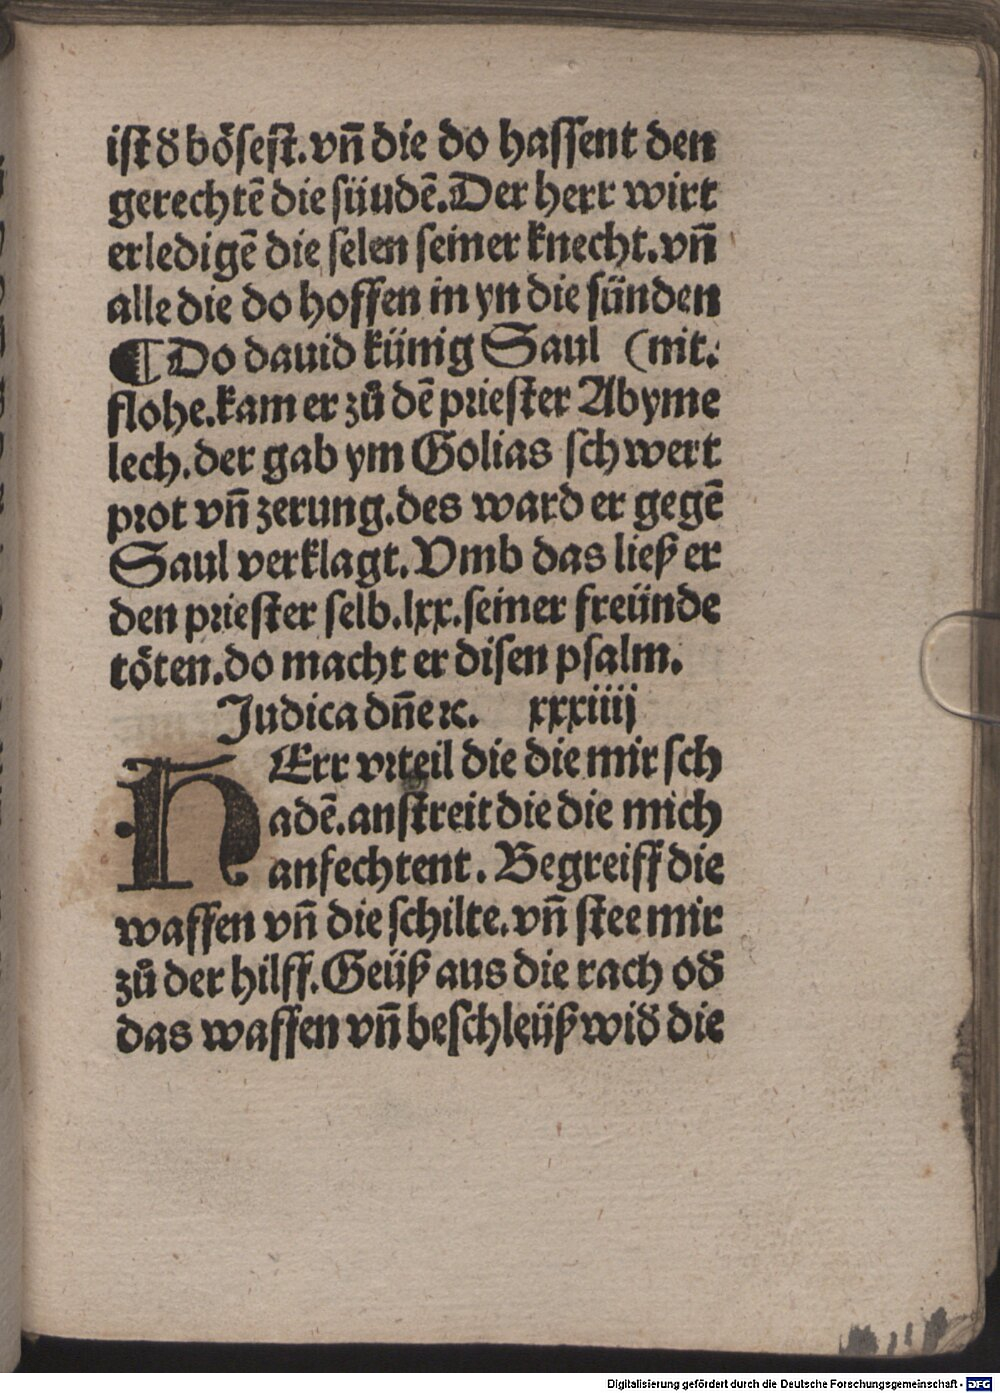 ist đ bősest.vn̄ die do hassent den
gerechtē die süudē.Der herr wirt
erledigē die selen seiner knecht.vn̄
alle die do hoffen in yn die sünden
¶Do dauid künig Saul (nit.
flohe.kam er zů dē priester Abyme
lech.der gab ym Golias schwert
prot vn̄ zerung.des ward er gegē
Saul verklagt.Vmb das ließ er
den priester selb.lxx.seiner freünde
tőten.do macht er disen psalm.
Judica dn̄e ⁊c. xxxiiij
HErr vrteil die die mir sch
adē.anstreit die die mich
anfechtent. Begreiff die
waffen vn̄ die schilte.vn̄ stee mir
zů der hilff.Geüß aus die rach ođ
das waffen vn̄ beschleüß wiđ die
Digitalisierung gefördert durch die Deutsche Forschungsgemeinschaft - DFG